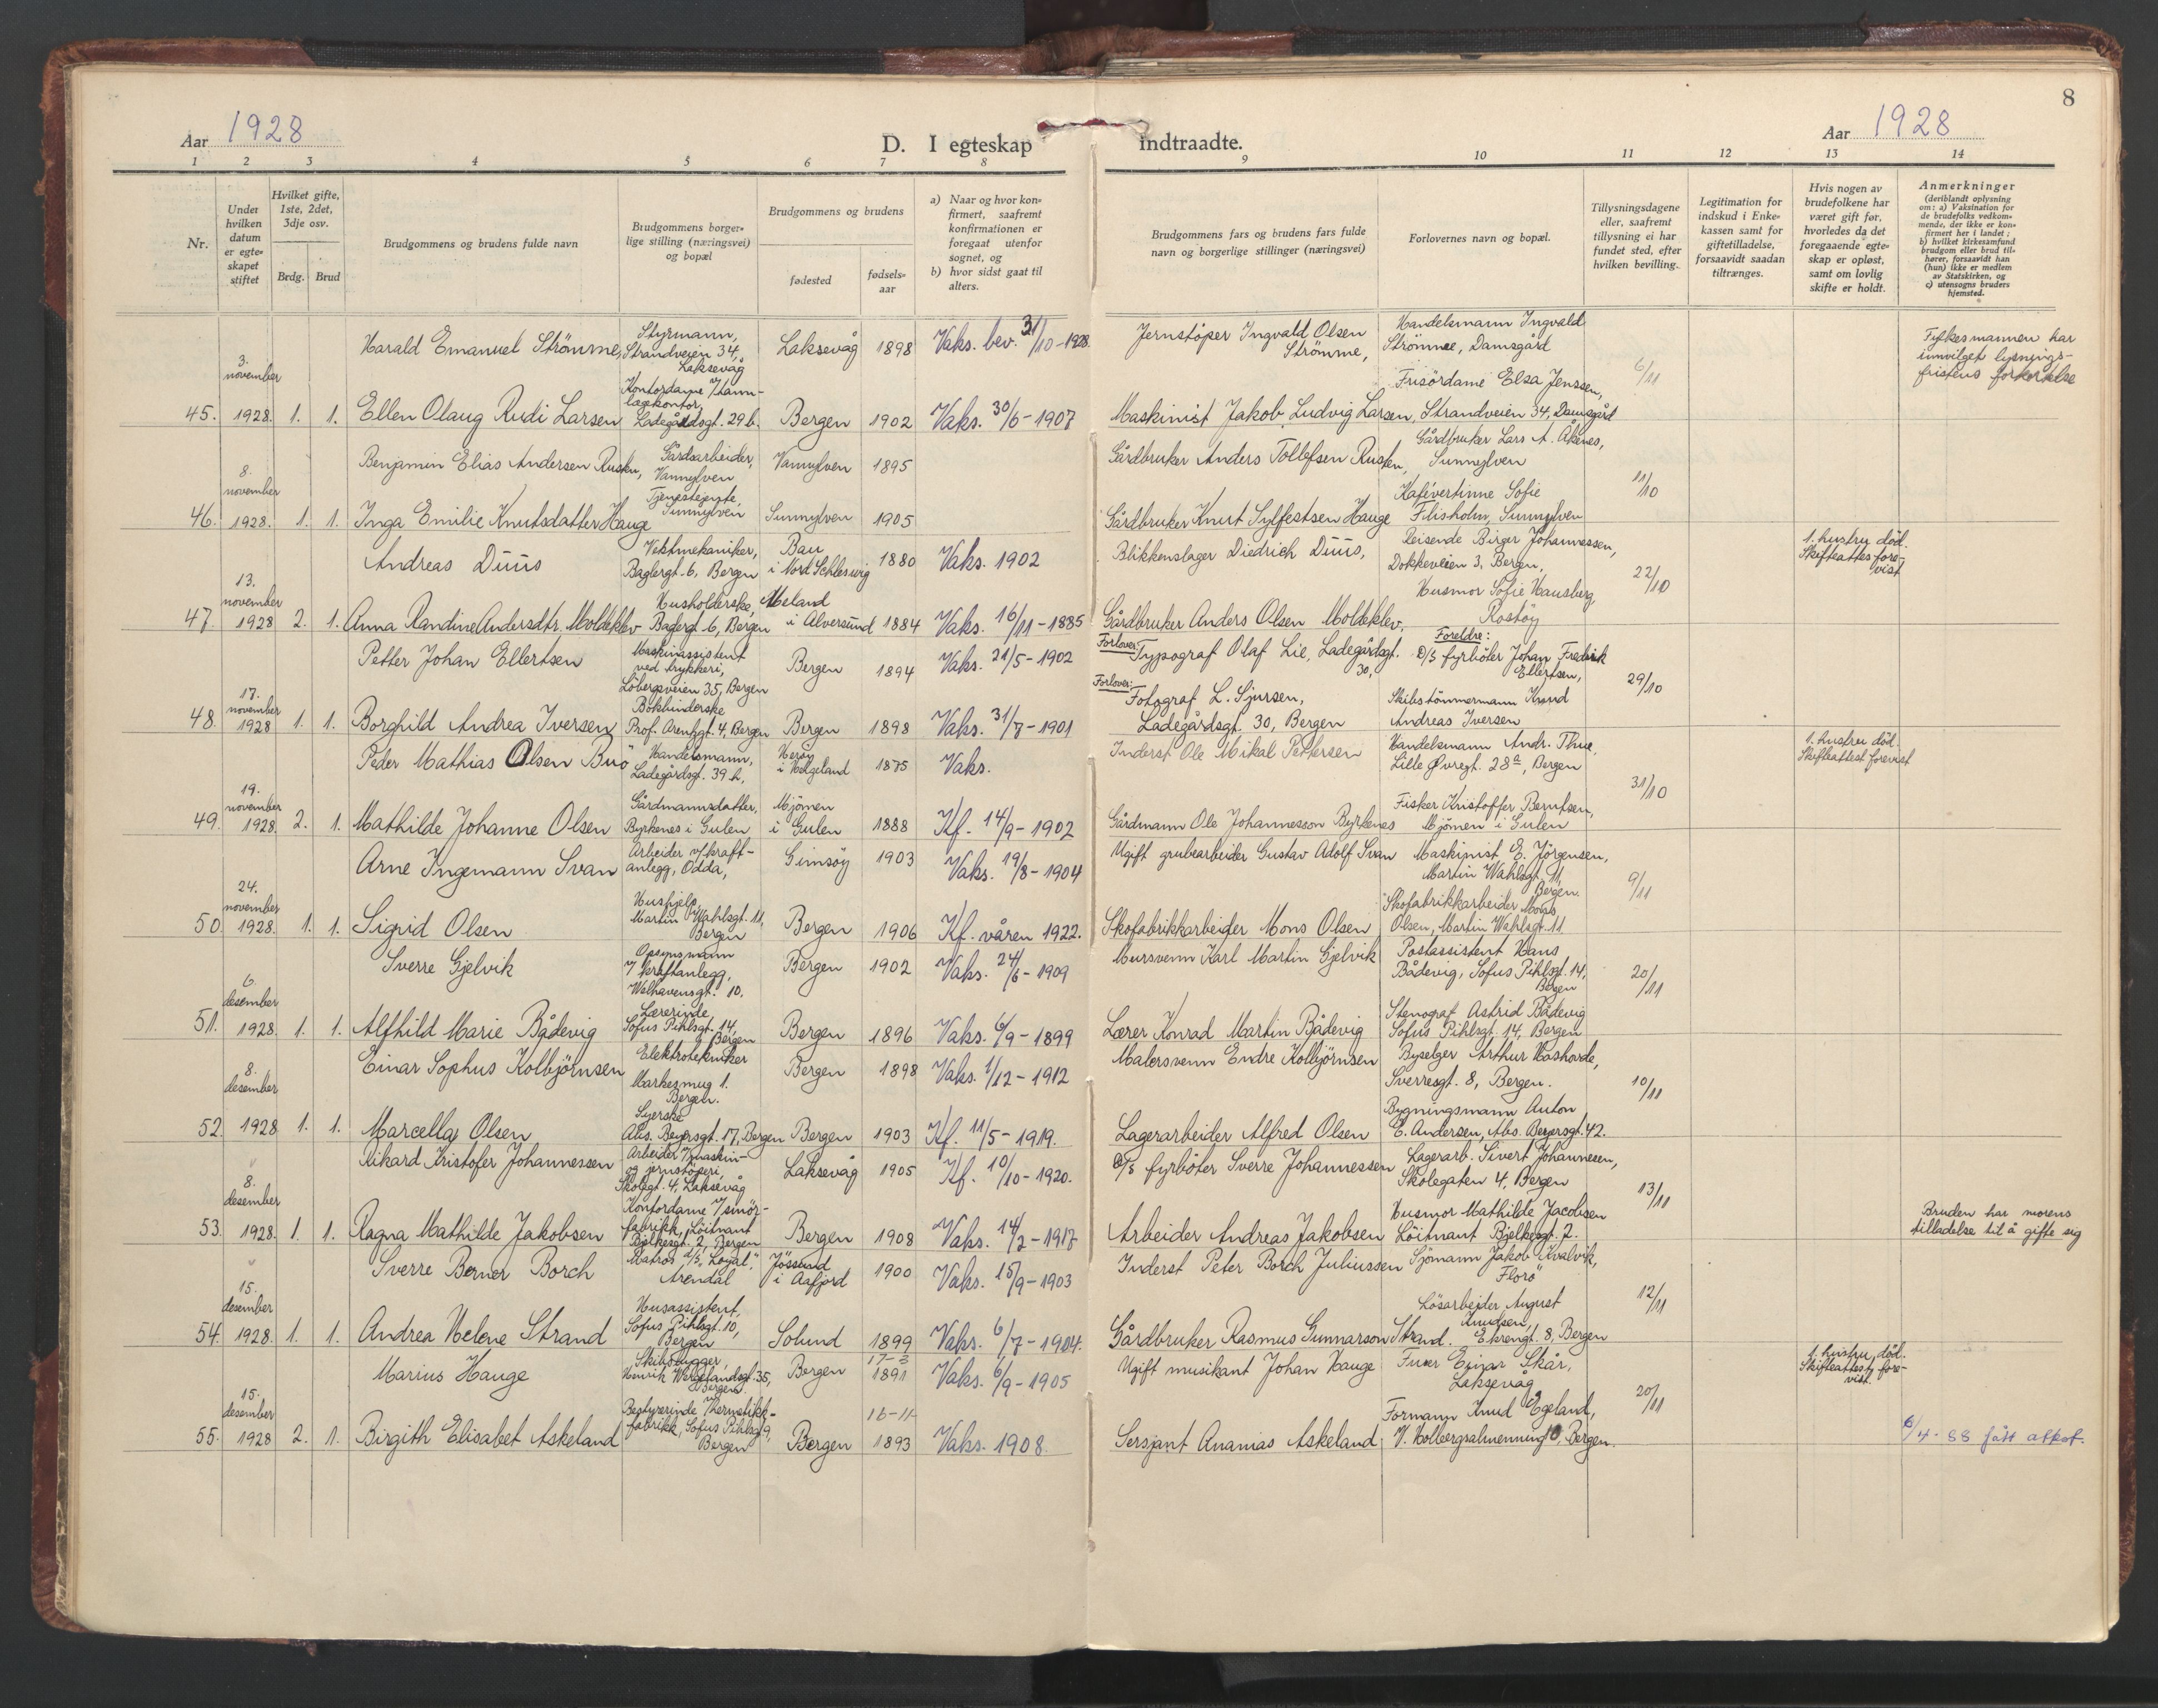 8
Aar 1928
D. I egteskap indtraadte.
Aar 1928
1 2 3 4 5 6 7 8 9 10 11 12 13 14
Nr.
Under hvilken datum er egteskapet stiftet
Hvilket gifte, 1ste, 2det, 3dje osv.
Brdg. Brud
Brudgommens og brudens fulde navn
Brudgommens borgerlige stilling (næringsvei) og bopæl
Brudgommens og brudens
fødested
fødselsaar
a) Naar og hvor konfirmert, saafremt konfirmationen er foregaat utenfor sognet, og
b) hvor sidst gaat til alters.
Brudgommens fars og brudens fars fulde navn og borgerlige stillinger (næringsvei)
Forlovernes navn og bopæl.
Tillysningsdagene eller, saafremt tillysning ei har fundet sted, efter hvilken bevilling.
Legitimation for indskud i Enkekassen samt for giftetilladelse, forsaavidt saadan tiltrænges.
Hvis nogen av brudefolkene har været gift før, hvorledes da det foregaaende egteskap er opløst, samt om lovlig skifte er holdt.
Anmerkninger (deriblandt oplysning om: a) Vaksination for de brudefolks vedkommende, der ikke er konfirmert her i landet; b) hvilket kirkesamfund brudgom eller brud tilhører, forsaavidt han (hun) ikke er medlem av Statskirken, og c) utensogns bruders hjemsted.
45. 3. november 1928. 1. 1.
Harald Emanuel Strömme, Styrmann, Strandveien 34, Laksevåg Laksevåg 1898 Vaks. bev. 31/10-1928. Jernstöper Ingvald Olsen Strömme, Handelsmann Ingvald Strömme, Damsgård 6/11 Fylkesmannen har innvilget lysningsfristens forkortelse
Ellen Olaug Rudi Larsen Kontordame Ladegårdsgt. 29 b. Bergen 1902 Vaks. 30/6-1907 Maskinist Jakob Ludvig Larsen, Frisördame Elsa Jenssen, Strandveien 34, Damsgård
46. 8. november 1928. 1. 1.
Benjamin Elias Andersen Rusten, Gårdsarbeider, Vannylven Vannylven 1895 Gårdbruker Anders Tollefsen Rusten, Gårdbruker Lars A. Åkenes, Sunnylven 11/10
Inga Emilie Knutsdatter Hauge Tjenestejente, Sunnylven Sunnylven 1905 Gårdbruker Knut Sylfestsen Hauge Kafévertinne Sofie Flisholm, Sunnylven
47. 13. november 1928 2. 1.
Andreas Duus Vektmekaniker, Baglergt. 6, Bergen Bau i Nord Schleswig 1880 Vaks. 1902 Blikkenslager Diedrich Duus, Reisende Birger Johannessen, Dokkeveien 3, Bergen, 22/10 1. hustru död. Skifteattest forevist
Anna Randine Andersdtr. Moldeklev Husholderske, Baglergt 6, Bergen Meland i Alversund 1884 Vaks. 16/11-1885 Gårdbruker Anders Olsen Moldeklev, Husmor Sofie Hausberg, Rostöy
48. 17. november 1928 1. 1.
Petter Johan Ellertsen Maskinassistent ved trykkeri, Löbergsveien 35, Bergen Bergen 1894 Vaks. 21/5-1902 Forlover: Typograf Olaf Lie, Ladegårdsgt. 30, Foreldre: D/S fyrböter Johan Fredrik Ellertsen, 29/10
Borghild Andrea Iversen Bokbinderske Prof. Arenzgt. 4, Bergen Bergen 1898 Vaks. 31/7-1901 Forlover: Fotograf L. Sjursen, Ladegårdsgt. 30, Bergen Skibstömmermann Knud Andreas Iversen
49. 19. november 1928. 2. 1.
Peder Mathias Olsen Buö Handelsmann, Ladegårdsgt. 39 b, Heröy i Helgeland 1875 Vaks. Inderst Ole Mikal Pettersen Handelsmann Andr. Thue, Lille Øvregt. 28a, Bergen 31/10 1. hustru död. Skifteattest forevist
Mathilde Johanne Olsen Gårdmannsdatter, Byrkenes i Gulen Mjömen i Gulen 1888 Kf. 14/9-1902 Gårdmann Ole Johannesson Byrkenes Fisker Kristoffer Berntsen, Mjömen i Gulen
50. 24. november 1928. 1. 1.
Arne Ingemann Svan Arbeider v/kraftanlegg, Odda, Gimsöy 1903 Vaks. 19/8-1904 Ugift grubearbeider Gustav Adolf Svan Maskinist E. Jörgensen, Martin Wahlsgt. 11, Bergen. 9/11
Sigrid Olsen Hushjelp, Martin Wahlsgt. 11, Bergen Bergen 1906 Kf. våren 1922. Skofabrikkarbeider Mons Olsen Skofabrikkarbeider Mons Olsen, Martin Wahlsgt. 11
51. 6. desember 1928. 1. 1.
Sverre Gjelvik Opsynsmann v/kraftanlegg, Welhavensgt. 10. Bergen 1902 Vaks. 24/6-1909 Mursvenn Karl Martin Gjelvik Postassistent Hans Bådevig, Sofus Pihlsgt. 14, Bergen 20/11
Alfhild Marie Bådevig Lærerinde, Sofus Pihlsgt. 14, Bergen Bergen 1896 Vaks. 6/9-1899 Lærer Konrad Martin Bådevig Stenograf Astrid Bådevig Sofus Pihlsgt. 14, Bergen
52. 8. desember 1928 1. 1.
Einar Sophus Kolbjörnsen Elektrotekniker Markesmug 1. Bergen. Bergen 1898 Vaks. 1/12-1912 Malersvenn Endre Kolbjörnsen Byselger Arthur Hashovde, Sverresgt. 8, Bergen. 10/11
Marcella Olsen Syerske Abs. Beyersgt. 17, Bergen Bergen 1903 Kf. 11/5-1919. Lagerarbeider Alfred Olsen Bygningsmann Anton E. Andersen, Abs. Beyersgt. 42.
53. 8. desember 1928. 1. 1.
Rikard Kristofer Johannessen Arbeider v/maskin- og jernstöperi, Skolegt. 4, Laksevåg Laksevåg 1905 Kf. 10/10-1920. D/S fyrböter Sverre Johannessen Lagerarb. Sivert Johannesen, Skolegaten 4, Bergen 13/11
Ragna Mathilde Jakobsen Kontordame v/smörfabrikk, Löitnant Bjelkesgt. 2, Bergen Bergen 1908 Vaks. 14/2-1917 Arbeider Andreas Jakobsen Husmor Mathilde Jacobsen Löitnant Bjelkesgt. 2. Bruden har morens tilladelse til å gifte sig
54. 15. desember 1928. 1. 1.
Sverre Berner Borch Matros d/s "Loyal", Arendal Jössund i Aafjord 1900 Vaks. 15/9-1903 Inderst Peter Borch Juliussen Sjömann Jakob Kvalvik, Florö 12/11
Andrea Helene Strand Husassistent, Sofus Pihlsgt. 10, Bergen Solund 1899 Vaks. 6/7-1904. Gårdbruker Rasmus Gunnarson Strand. Lösarbeider August Knudsen, Ekrengt. 8, Bergen
55. 15. desember 1928 2. 1.
Marius Hauge Skibsbygger, Henrik Wergelandsgt. 35, Bergen. Bergen 17-3 1891 Vaks. 6/9-1905 Ugift musikant Johan Hauge Einar Skår, Laksevåg 20/11 1. hustru död. Skifteattest forevist.
Birgith Elisabet Askeland Bestyrerinde v/hermetikkfabrikk, Sofus Pihlsgt 9, Bergen Bergen 16-11- 1893 Vaks. 1908. Sersjant Ananias Askeland Formann Knud Egeland, V. Holbergsalmenning 10, Bergen. 6/4-88 fått attest.